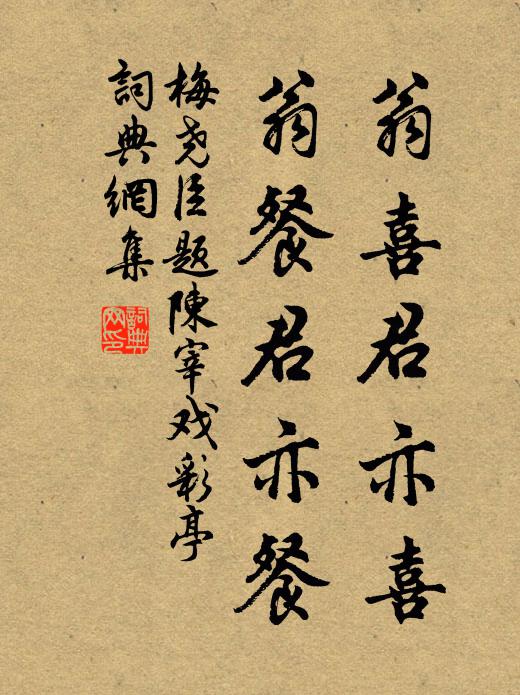 翁喜君亦喜
翁餐君亦餐
梅尧臣題陳宰戏彩亭
詞典網集
詞典网印